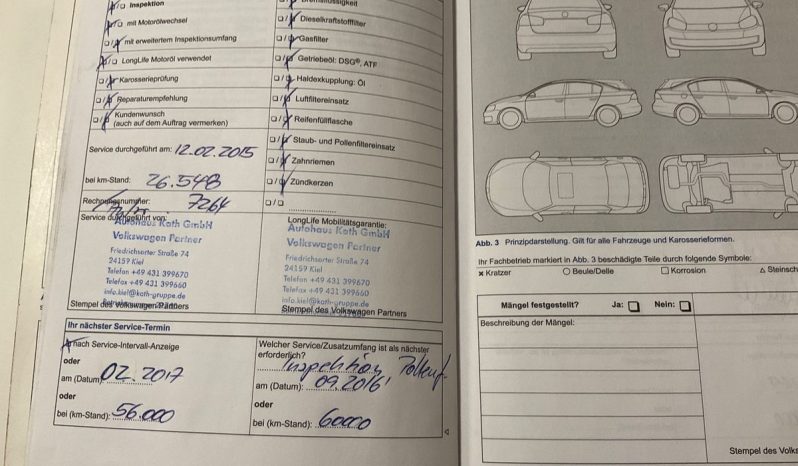 Inspektion
mit Motorölwechsel
mit erweitertem Inspektionsumfang
LongLife Motoröl verwendet
Karosserieprüfung
Reparaturempfehlung
Kundenwunsch
(auch auf dem Auftrag vermerken)
Service durchgeführt am: 12.02.2015
bei km-Stand: 26.548
Rechnungsnummer: 7264
Service durchgeführt von:
Autohaus Kath GmbH
Volkswagen Partner
Friedrichsorter Straße 74
24159 Kiel
Telefon +49 431 399670
Telefax +49 431 399660
info.kiel@kath-gruppe.de
Stempel des Volkswagen Partners
Dieselkraftstofffilter
Gasfilter
Getriebeöl: DSG®, ATF
Haldexkupplung: Öl
Luftfiltereinsatz
Reifenfüllflasche
Staub- und Pollenfiltereinsatz
Zahnriemen
Zündkerzen
LongLife Mobilitätsgarantie:
Autohaus Kath GmbH
Volkswagen Partner
Friedrichsorter Straße 74
24159 Kiel
Telefon +49 431 399670
Telefax +49 431 399660
info.kiel@kath-gruppe.de
Stempel des Volkswagen Partners
Ihr nächster Service-Termin
nach Service-Intervall-Anzeige
oder
am (Datum): 02.2017
oder
bei (km-Stand): 56.000
Welcher Service/Zusatzumfang ist als nächster
erforderlich?
Inspektion
am (Datum): 09.2016
oder
bei (km-Stand): 60000
Abb. 3 Prinzipdarstellung. Gilt für alle Fahrzeuge und Karosserieformen.
Ihr Fachbetrieb markiert in Abb. 3 beschädigte Teile durch folgende Symbole:
x Kratzer O Beule/Delle □ Korrosion △ Steinsch
Mängel festgestellt? Ja: □ Nein: □
Beschreibung der Mängel:
Stempel des Volks